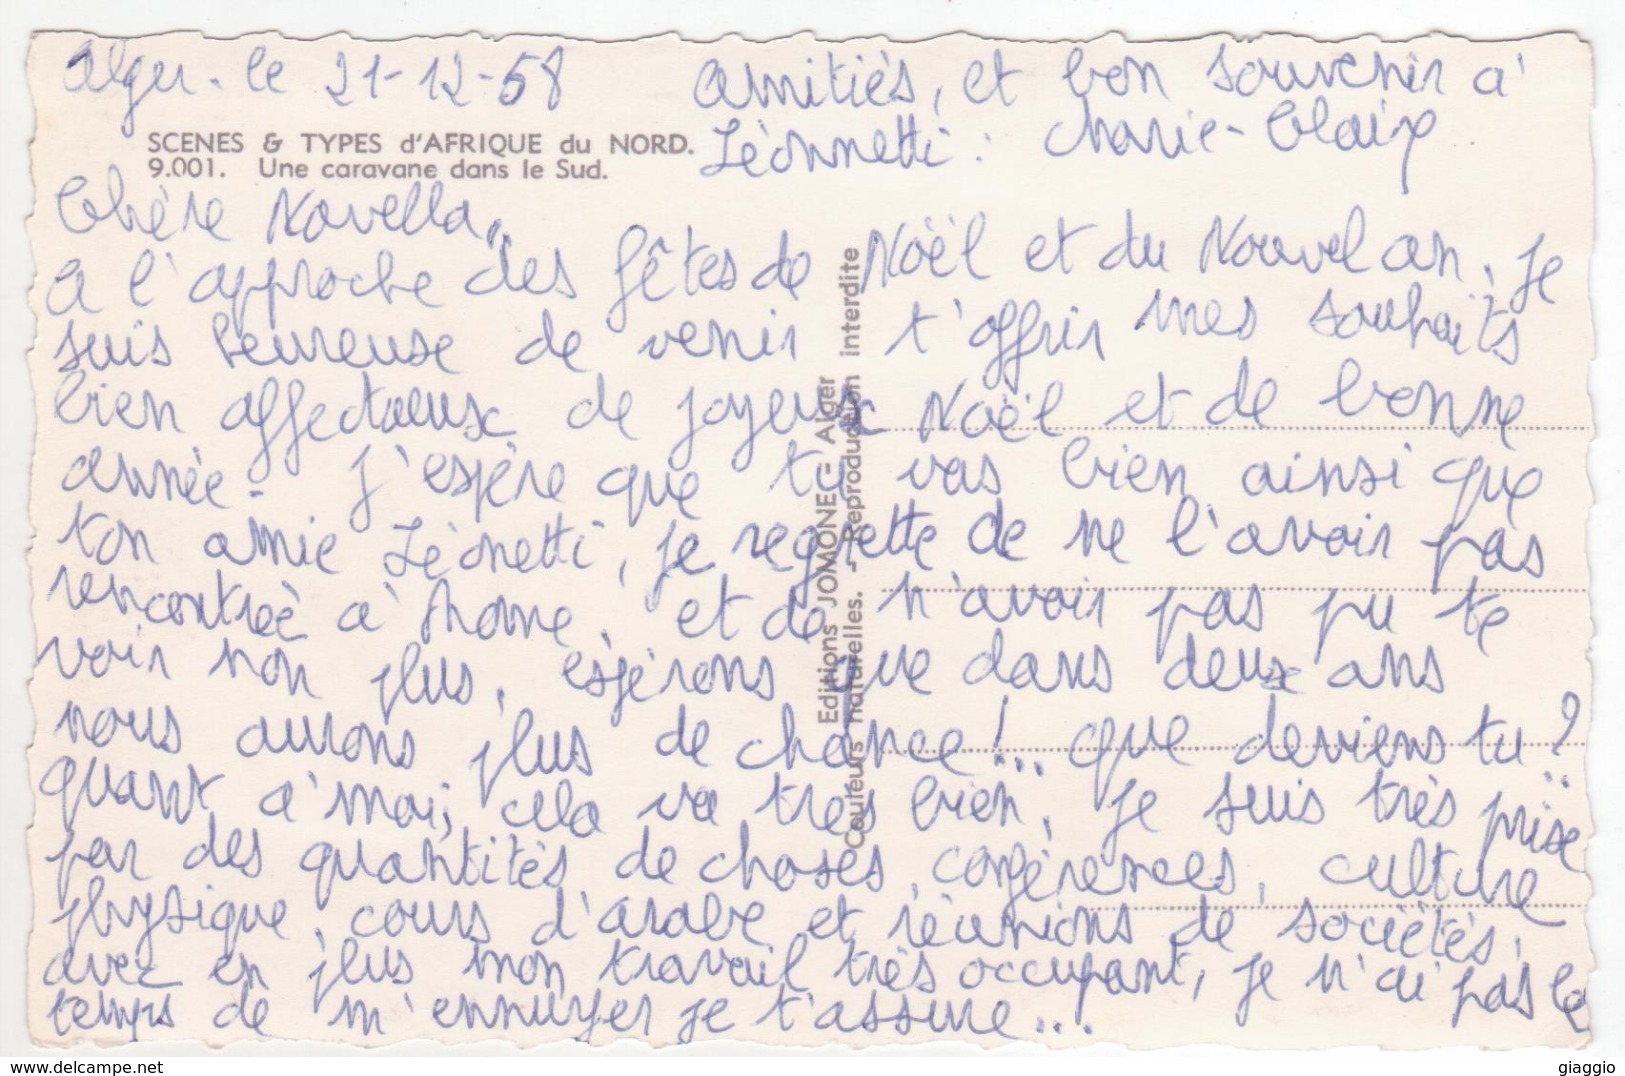 Alger. le 21-12-58
amitiés, et bon souvenir à
Léonnetti : Marie-Claire
SCENES & TYPES d'AFRIQUE du NORD.
9.001. Une caravane dans le Sud.
Chère Novella,,
A l'approche des fêtes de Noël et du Nouvel an, je
suis heureuse de venir t'offrir mes souhaits
bien affectueux de joyeux Noël et de bonne
année - J'espère que tu vas bien ainsi que
ton amie Léonetti, je regrette de ne l'avoir pas
rencontrée à Rome, et de n'avoir pas pu te
voir non plus, espérons que dans deux ans
nous aurons plus de chance!... que deviens tu?
quant à moi, cela va très bien, je suis très prise
par des quantités de choses, conférences, culture
physique, cours d'arabe et réunions de sociétés,
avec en plus mon travail très occupant, je n'ai pas le
temps de m'ennuyer je t'assure...
Editions JOMONE - Alger
Couleurs naturelles. - Reproduction interdite
delcampe.net
giaggio